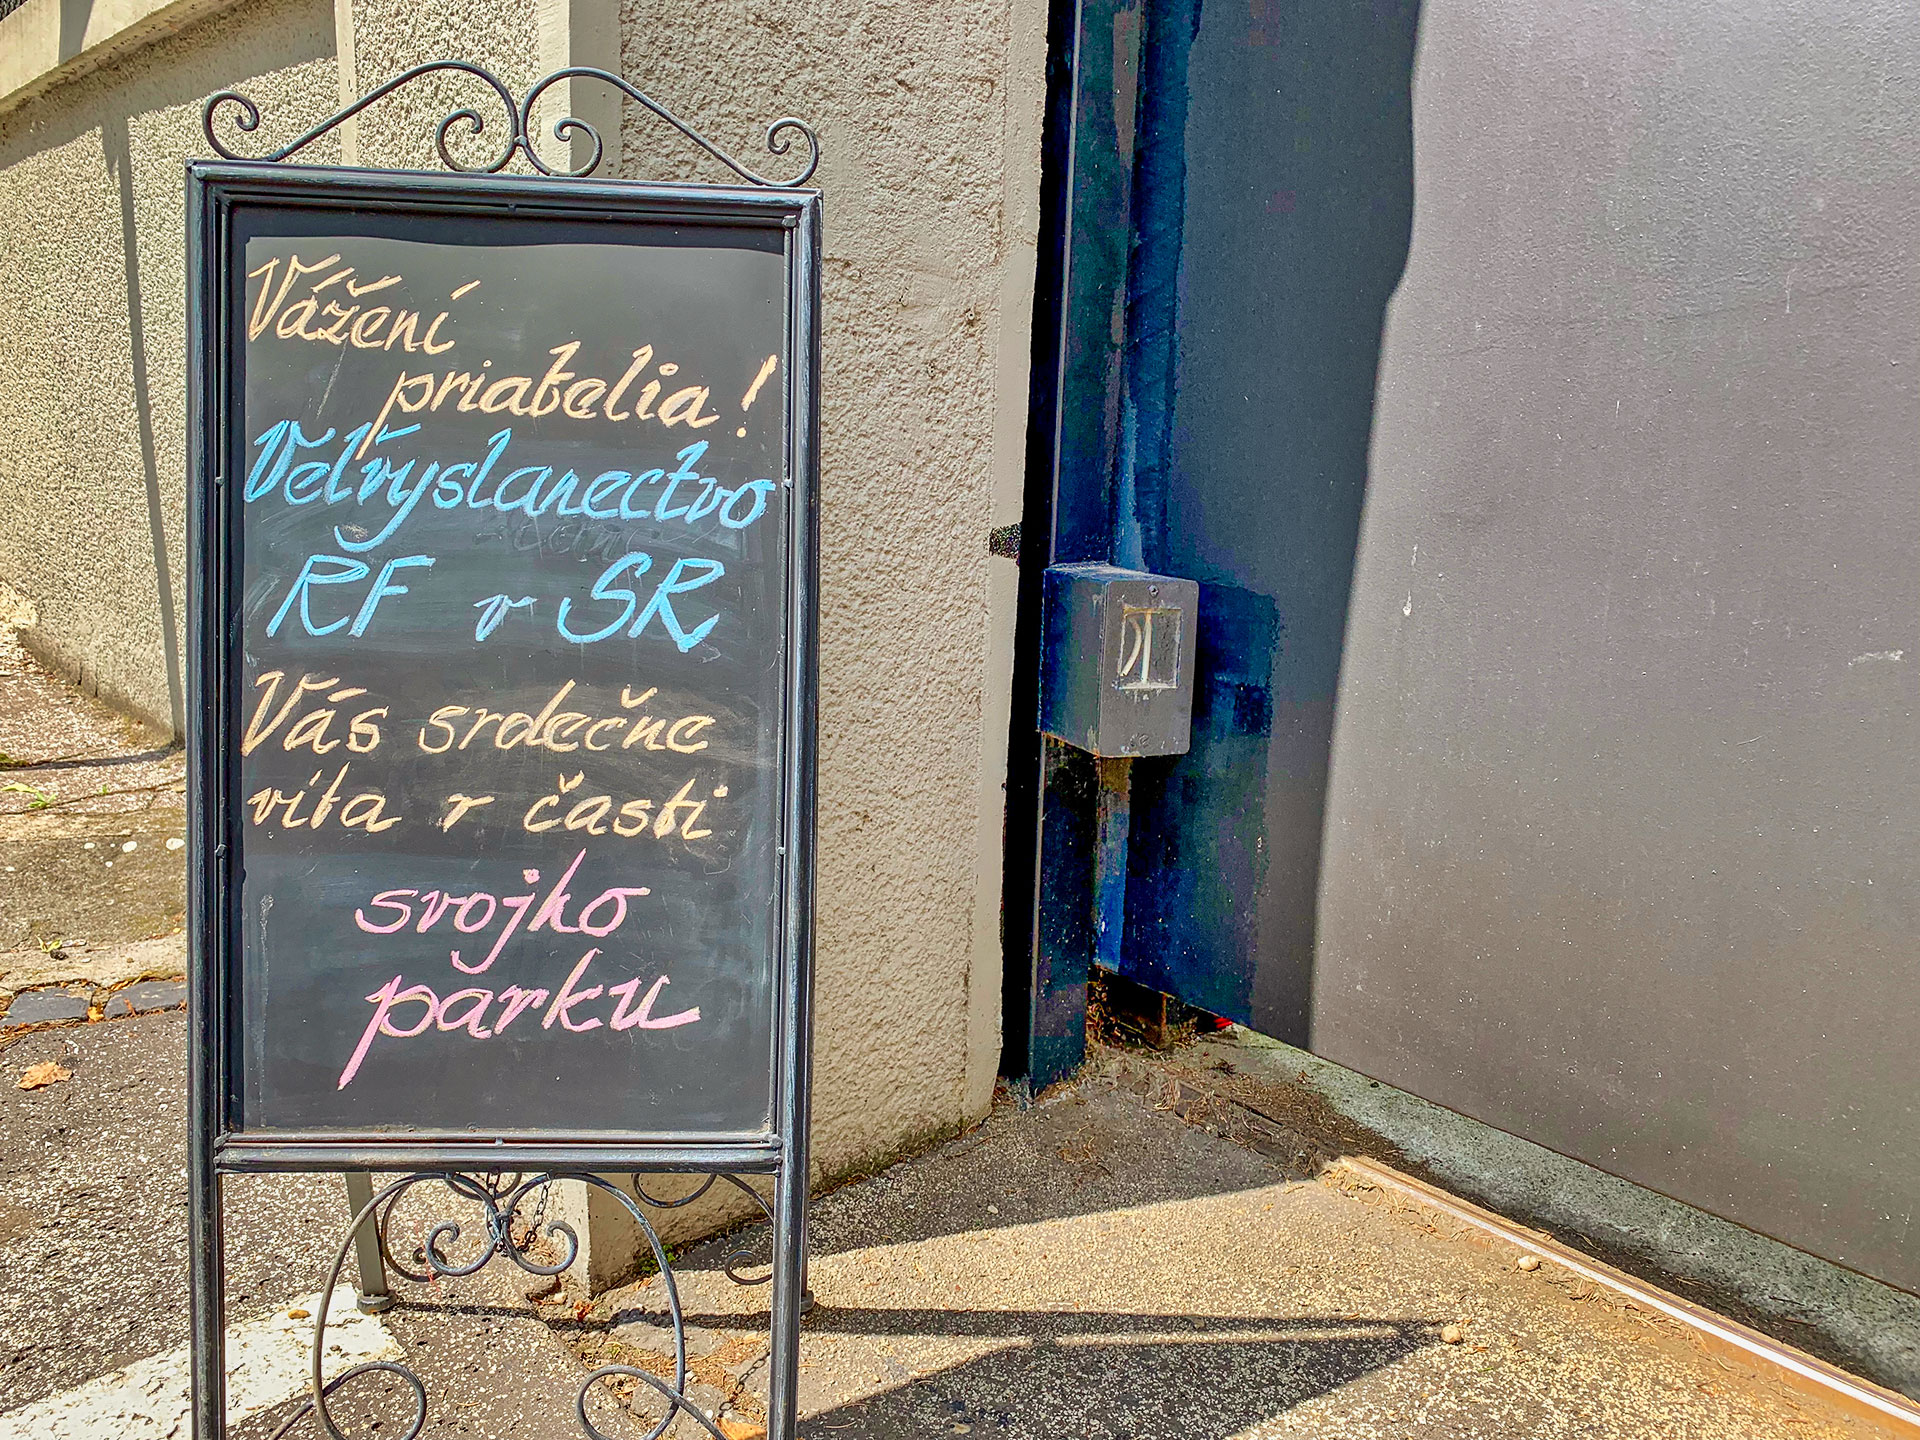 Vážení
priatelia!
Veľvyslanectvo
RF v SR
Vás srdečne
víta v časti
svojho
parku